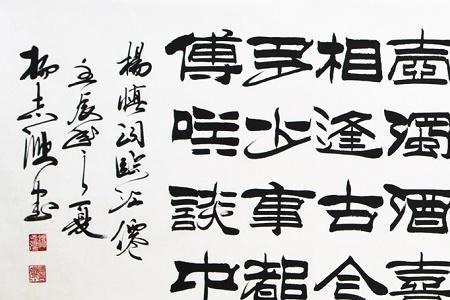 壺濁酒喜
相逢古今
多少事都
傅咲談中
楊慎詞臨江僊
壬辰年之夏
楊志書